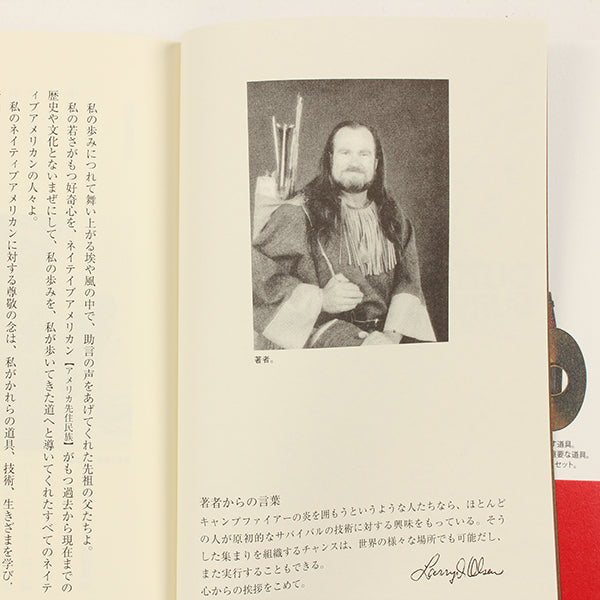 私の歩みにつれて舞い上がる埃や風の中で、助言の声をあげてくれた先祖の父たちよ。
私の若さがもつ好奇心を、ネイテイブアメリカン【アメリカ先住民族】がもつ過去から現在までの
歴史や文化とないまぜにして、私の歩みを、私が歩いてきた道へと導いてくれたすべてのネイテ
ィブアメリカンの人々よ。
私のネイティブアメリカンに対する尊敬の念は、私がかれらの道具、技術、生きざまを学び、
著者。
著者からの言葉
キャンプファイアーの炎を囲もうというような人たちなら、ほとんど
の人が原初的なサバイバルの技術に対する興味をもっている。そう
した集まりを組織するチャンスは、世界の様々な場所でも可能だし、
また実行することもできる。
心からの挨拶をこめて。
Larry D. Olsen
す道具。
重要な道具。
セット。